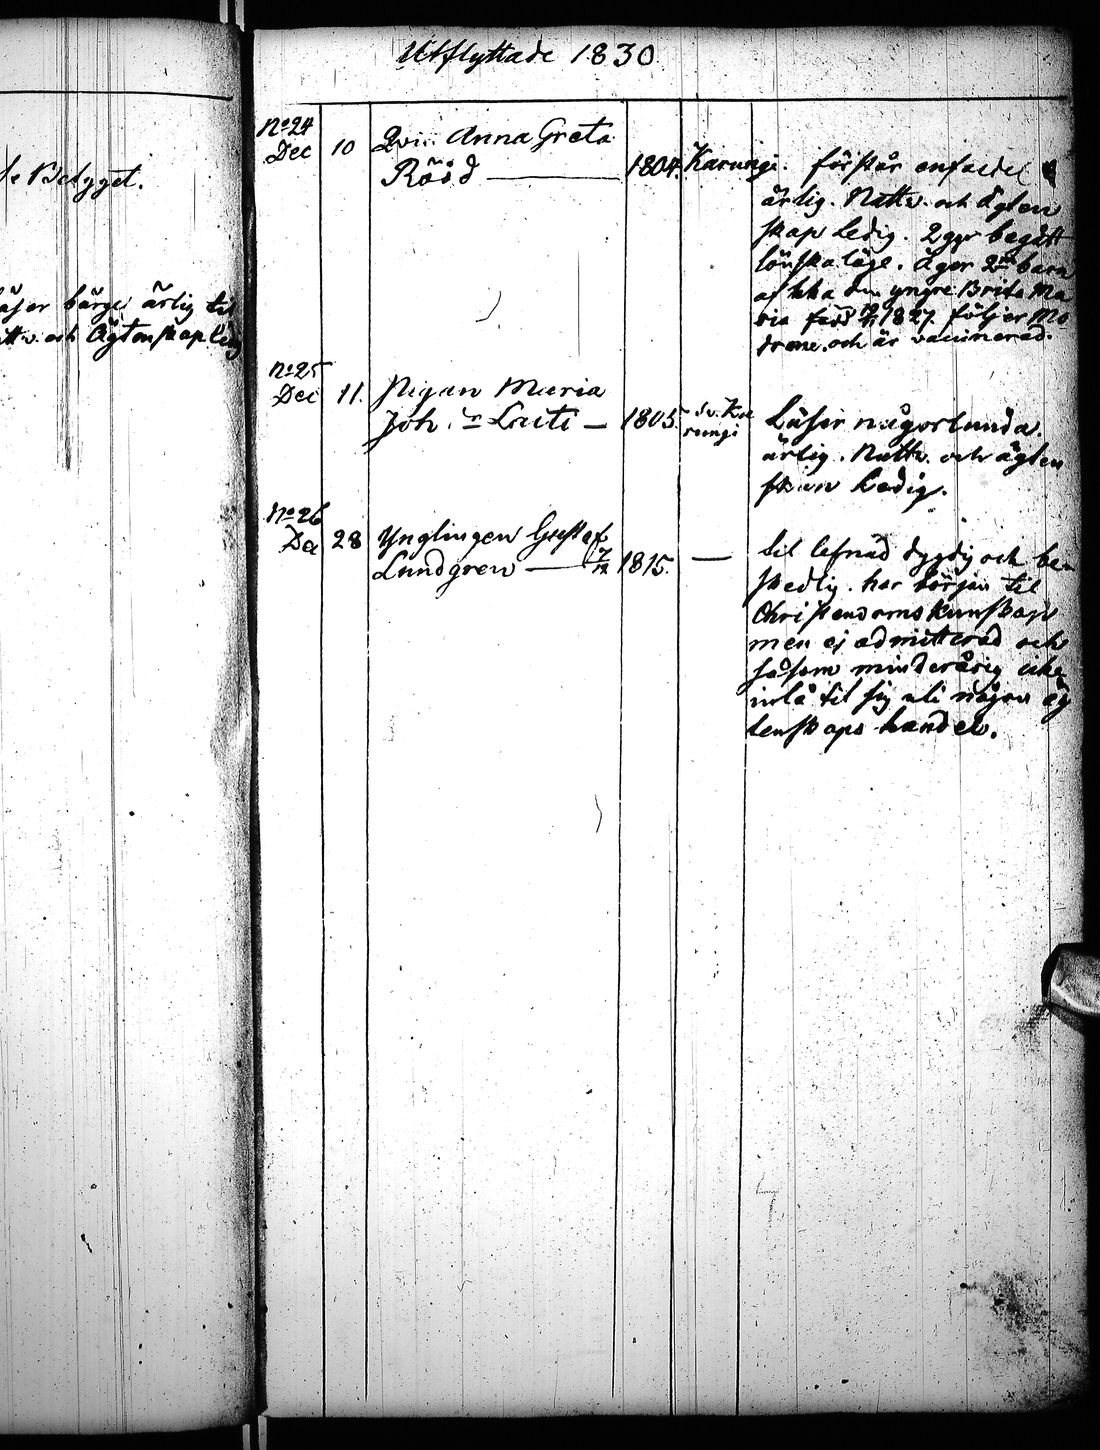 Utflyttade 1830
de Betyget.
läser bärgl. ärlig til
Nattv. och Ägtenskap ledig
No 24
Dec 10 Qvin. Anna Greta
Rööd 1804. Karungi. förstår enfaldel
ärlig. Nattv. och ägten
skap Ledig. 2 ggr begått
lönskaläge. Äger 2ne barn
af hka den yngre Brita Ma
ria född 1827. följer Mo
dren. och är vaccinerad.
No 25
Dec 11. Pigan Maria
Joh. dr Lauti 1805. Sv. Ka
rungi
Läser någorlunda.
ärlig. Nattv. och ägten
skap Ledig.
No 26
Dec 28 Ynglingen Gustaf
Lundgren 1815. —
til lefnad dygdig och be
skedlig. har början til
Christendoms kunskap
men ej admitterad och
såsom minderårig icke
inlå til sig uti någon äg
tenskaps handel.